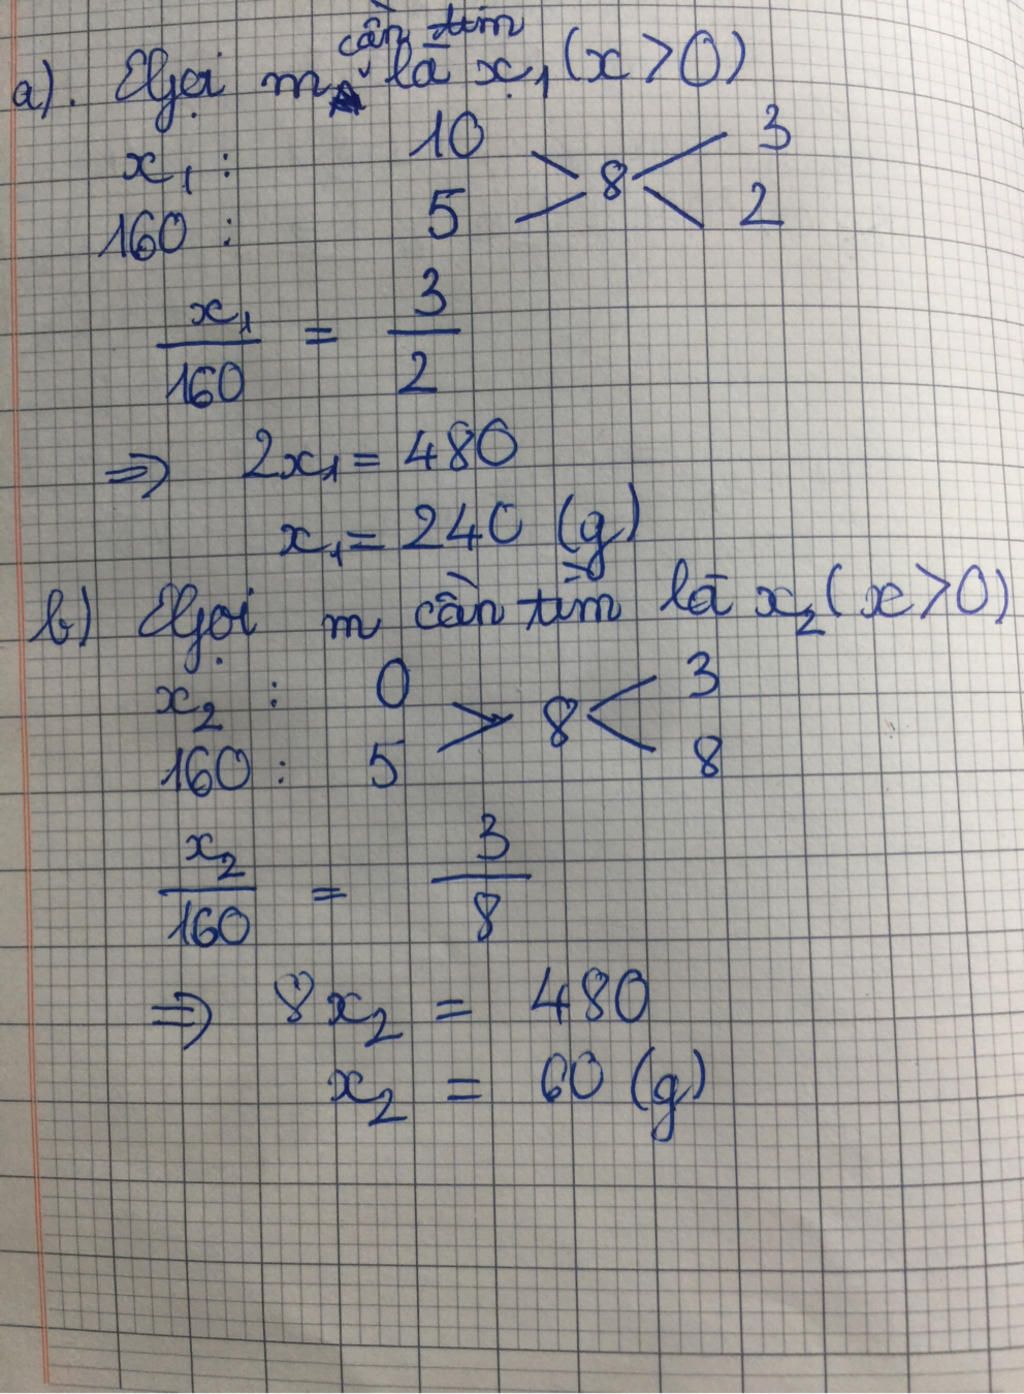 cần tìm
a). Gọi m là x₁ (x > 0)
x₁ : 10 3
8
160 : 5 2
x₁/160 = 3/2
⇒ 2x₁ = 480
x₁ = 240 (g)
b) Gọi m cần tìm là x₂ (x > 0)
x₂ : 0 3
8
160 : 5 8
x₂/160 = 3/8
⇒ 8x₂ = 480
x₂ = 60 (g)